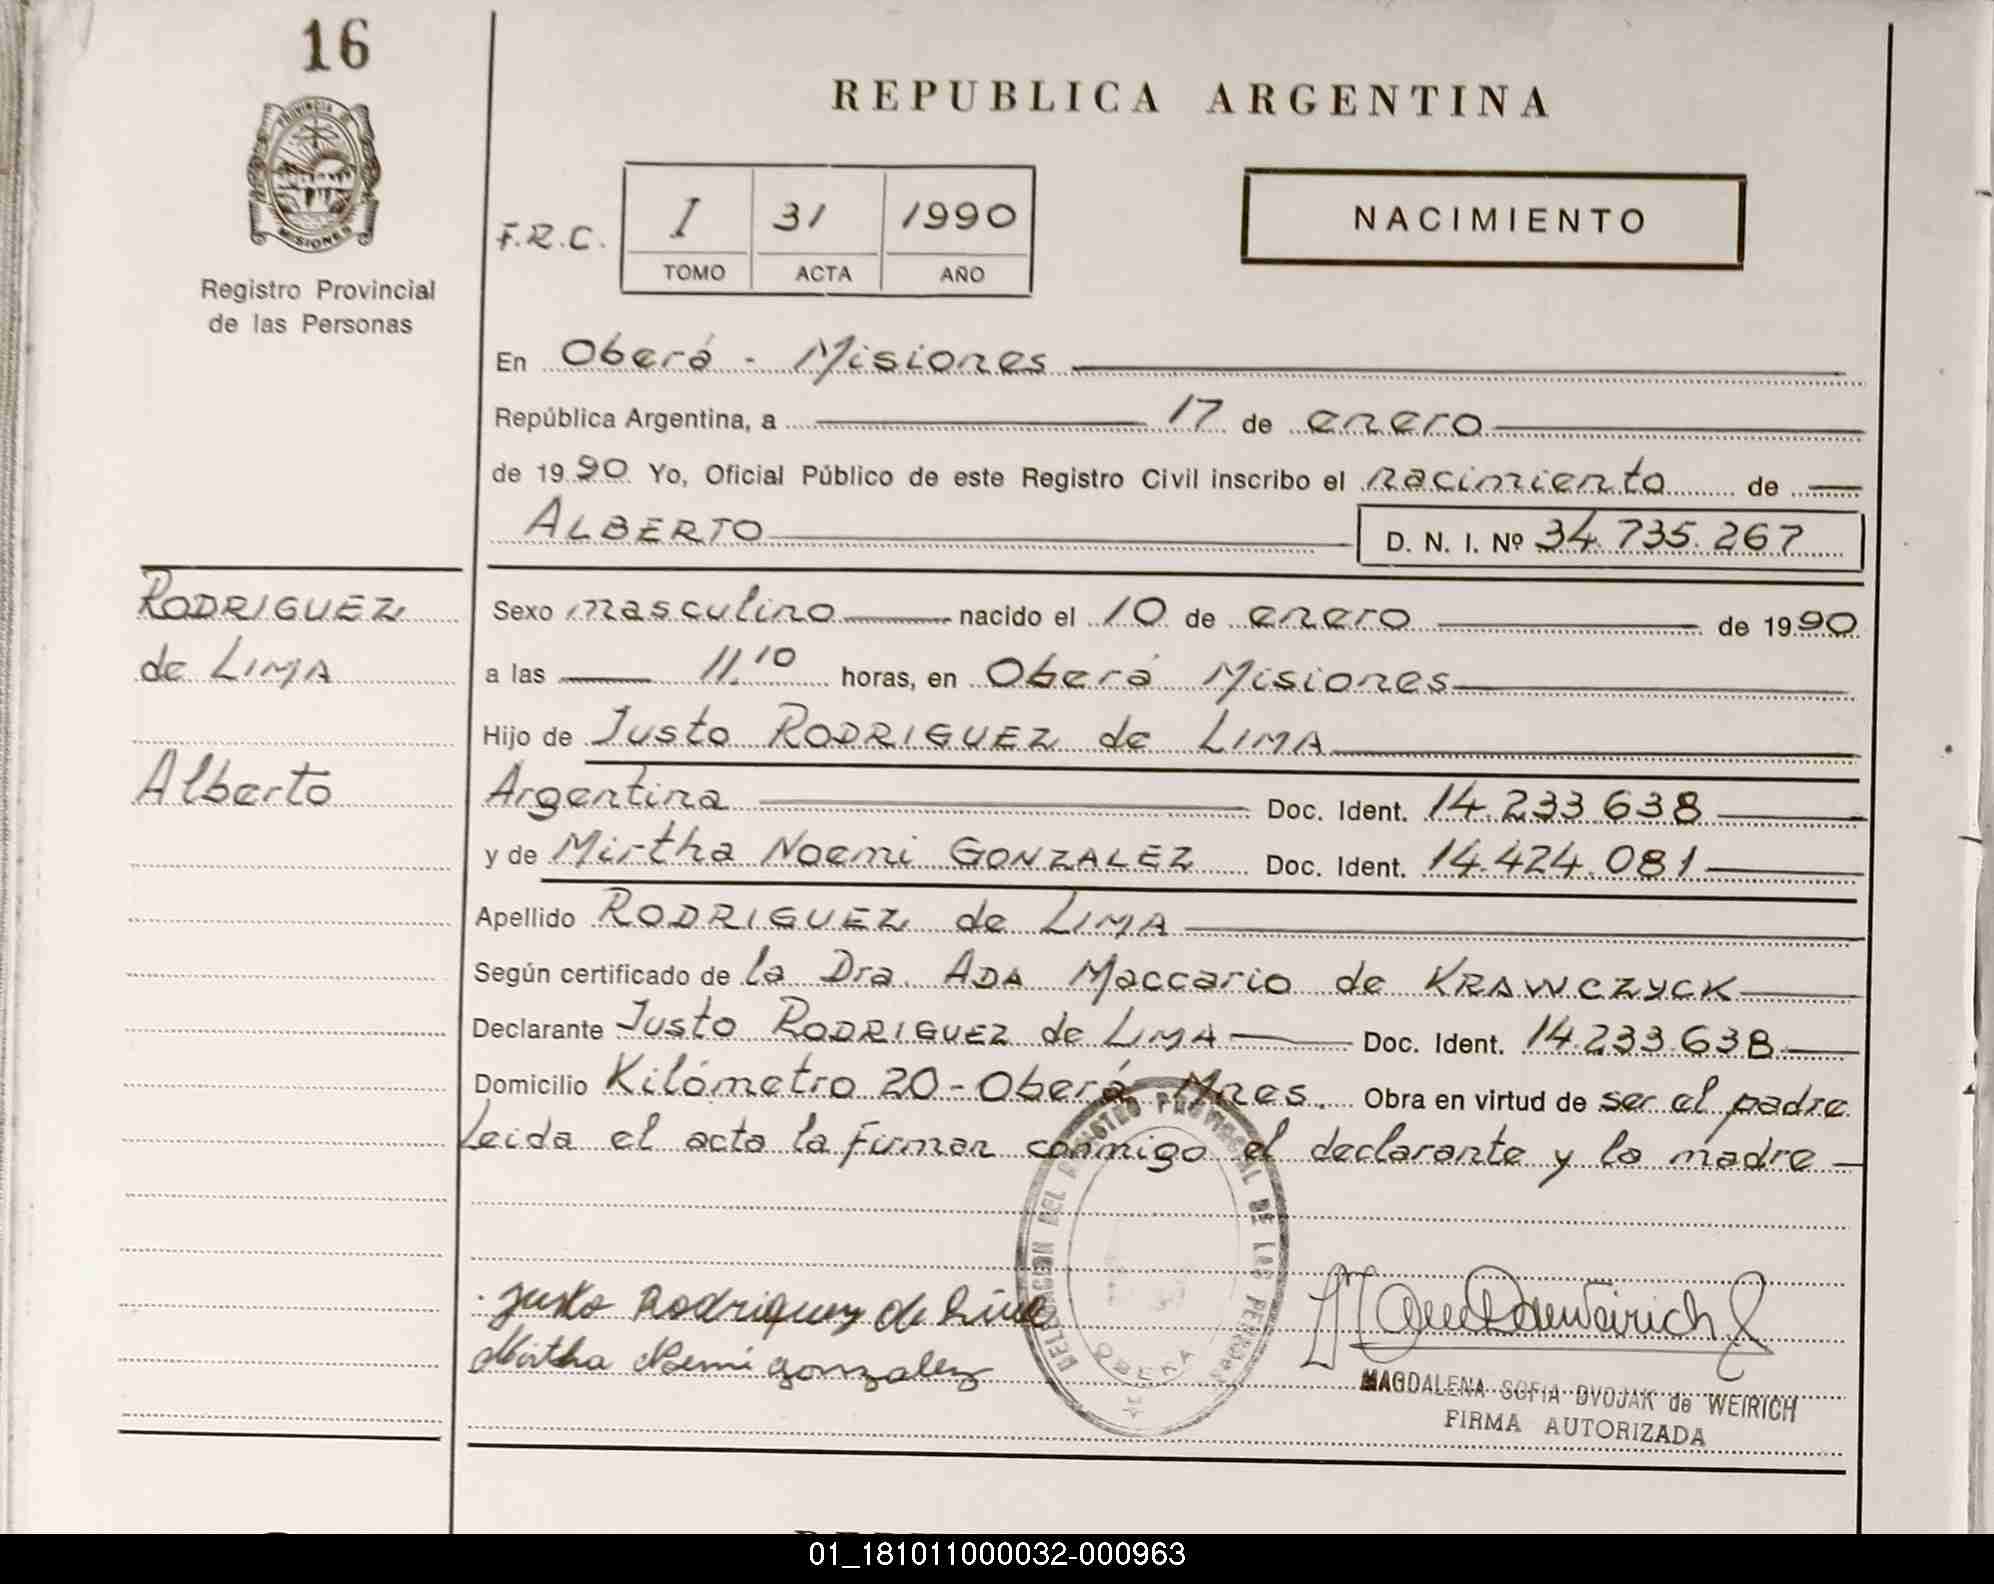 16
REPUBLICA ARGENTINA
PROVINCIA DE
MISIONES
Registro Provincial
de las Personas
F.R.C.
I 31 1990
TOMO ACTA AÑO
NACIMIENTO
En Oberá - Misiones
República Argentina, a 17 de enero
de 1990 Yo, Oficial Público de este Registro Civil inscribo el nacimiento de
ALBERTO D. N. I. Nº 34.735.267
RODRIGUEZ
de LIMA
Alberto
Sexo masculino nacido el 10 de enero de 1990
a las 11.10 horas, en Oberá Misiones
Hijo de Justo RODRIGUEZ de LIMA
Argentina Doc. Ident. 14.233.638
y de Mirtha Noemi GONZALEZ Doc. Ident. 14.424.081
Apellido RODRIGUEZ de LIMA
Según certificado de la Dra. ADA Maccario de KRAWCZYCK
Declarante Justo RODRIGUEZ de LIMA Doc. Ident. 14.233.638
Domicilio Kilómetro 20 - Oberá Mnes. Obra en virtud de ser el padre
Leida el acta la firman conmigo el declarante y la madre
DELEGACION DEL REGISTRO PROVINCIAL DE LAS PERSONAS
OBERA
Justo Rodriguez de Lima
Mirtha Noemi gonzalez
MAGDALENA SOFIA DVOJAK de WEIRICH
FIRMA AUTORIZADA
01_181011000032-000963